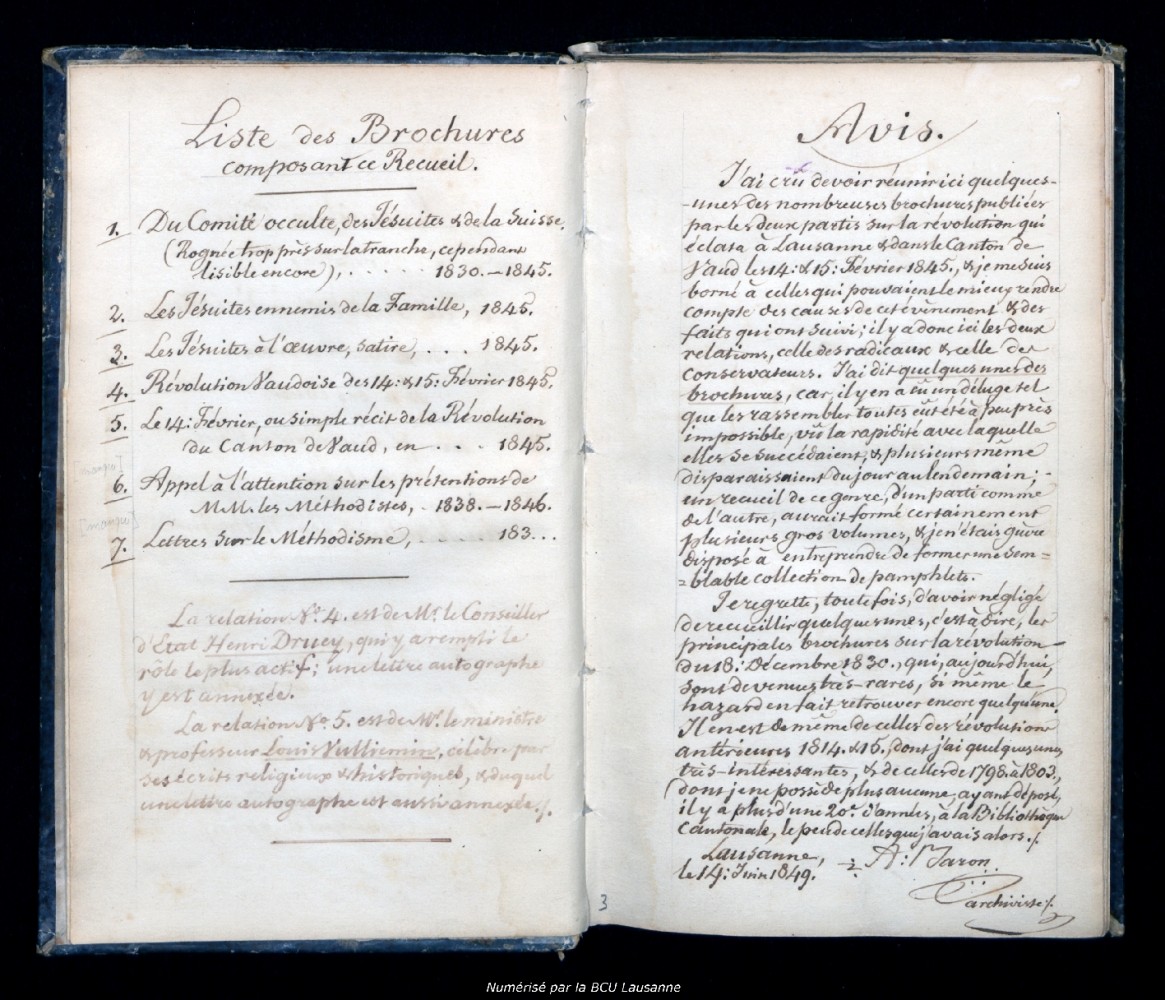 Liste des Brochures
composant ce Recueil.
1. Du Comité occulte, des Jésuites & de la Suisse.
(Rognée trop près sur la tranche, cependant
lisible encore), . . . . . 1830.–1845.
2. Les Jésuites ennemis de la Famille, 1845.
3. Les Jésuites à l'œuvre, satire, . . . 1845.
4. Révolution Vaudoise des 14: & 15: Février 1845.
5. Le 14: Février, ou simple récit de la Révolution
du Canton de Vaud, en . . . 1845.
[manque]
6. Appel à l'attention sur les prétentions de
M.M. les Méthodistes, . 1838.–1846.
[manque]
7. Lettres sur le Méthodisme, . . . . . 183...
La relation No. 4. est de Mr. le Conseiller
d'Etat Henri Druey, qui y a rempli le
rôle le plus actif; une lettre autographe
y est annexée.
La relation No. 5. est de Mr. le ministre
& professeur Louis Vulliemin, célèbre par
ses écrits religieux & historiques, & duquel
une lettre autographe est aussi annexée./.
Avis.
J'ai crû devoir réunir ici quelques-
-unes des nombreuses brochures publiées
par les deux partis sur la révolution qui
éclata à Lausanne & dans le Canton de
Vaud les 14: & 15: Février 1845., & je me suis
borné à celles qui pouvaient le mieux rendre
compte des causes de cet événement & des
faits qui ont suivi; il y a donc ici les deux
relations, celle des radicaux & celle des
conservateurs. J'ai dit quelques unes des
brochures, car, il y en a eu un déluge tel
que les rassembler toutes eût été à peu près
impossible, vû la rapidité avec laquelle
elles se succédaient, & plusieurs même
disparaissaient du jour au lendemain; -
un recueil de ce genre, d'un parti comme
de l'autre, aurait formé certainement
plusieurs gros volumes, & je n'étais guère
disposé à entreprendre de former une sem=
=blable collection de pamphlets.
Je regrette, toutefois, d'avoir négligé
de recueillir quelques unes, c'est à dire, les
principales brochures sur la révolution
du 18: Décembre 1830., qui, aujourd'hui,
sont devenues très-rares, si même le
hazard en fait retrouver encore quelqu'une.
Il en est de même de celles des révolutions
antérieures 1814. & 15., dont j'ai quelques unes
très-intéressantes, & de celles de 1798. à 1803.,
dont je ne possède plus aucune, ayant déposé,
il y a plus d'une 20e. d'années, à la Bibliothèque
Cantonale, le peu de celles que j'avais alors./.
Lausanne,
le 14: Juin 1849.
A: Baron
archiviste/.
3
Numérisé par la BCU Lausanne